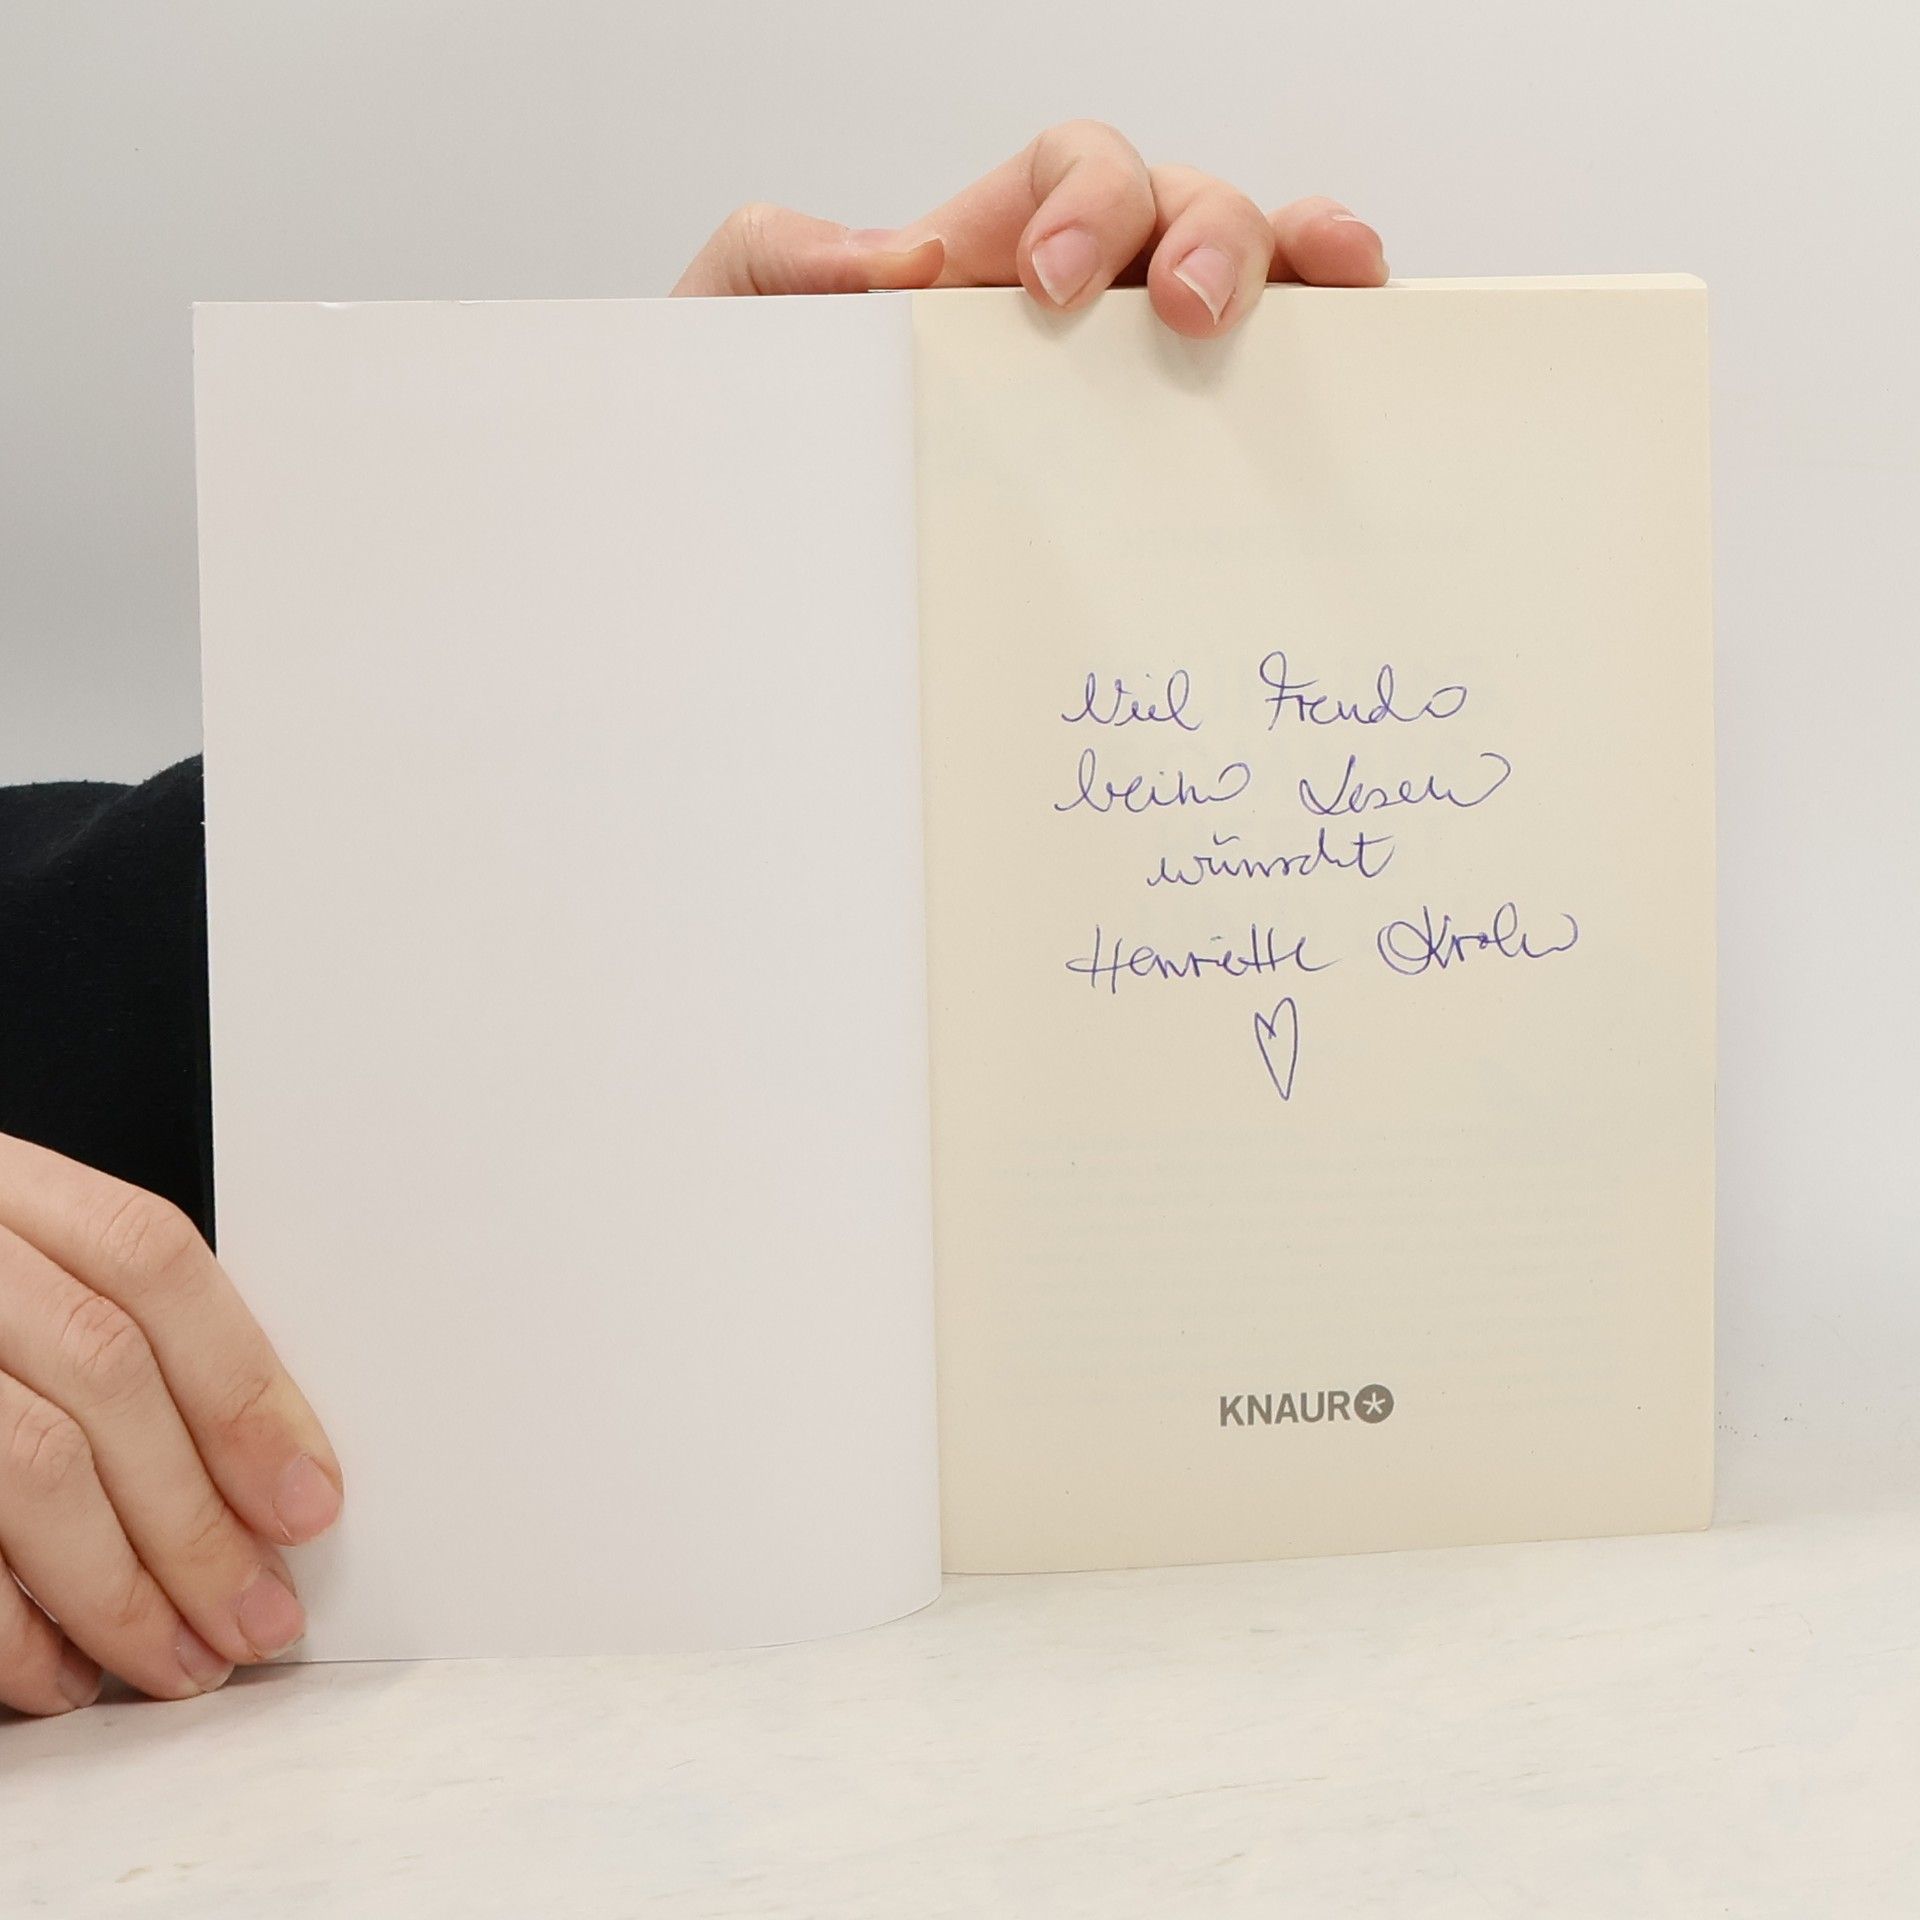 Viel Freude
beim Lesen
wünscht
Henriette Krohn
KNAUR